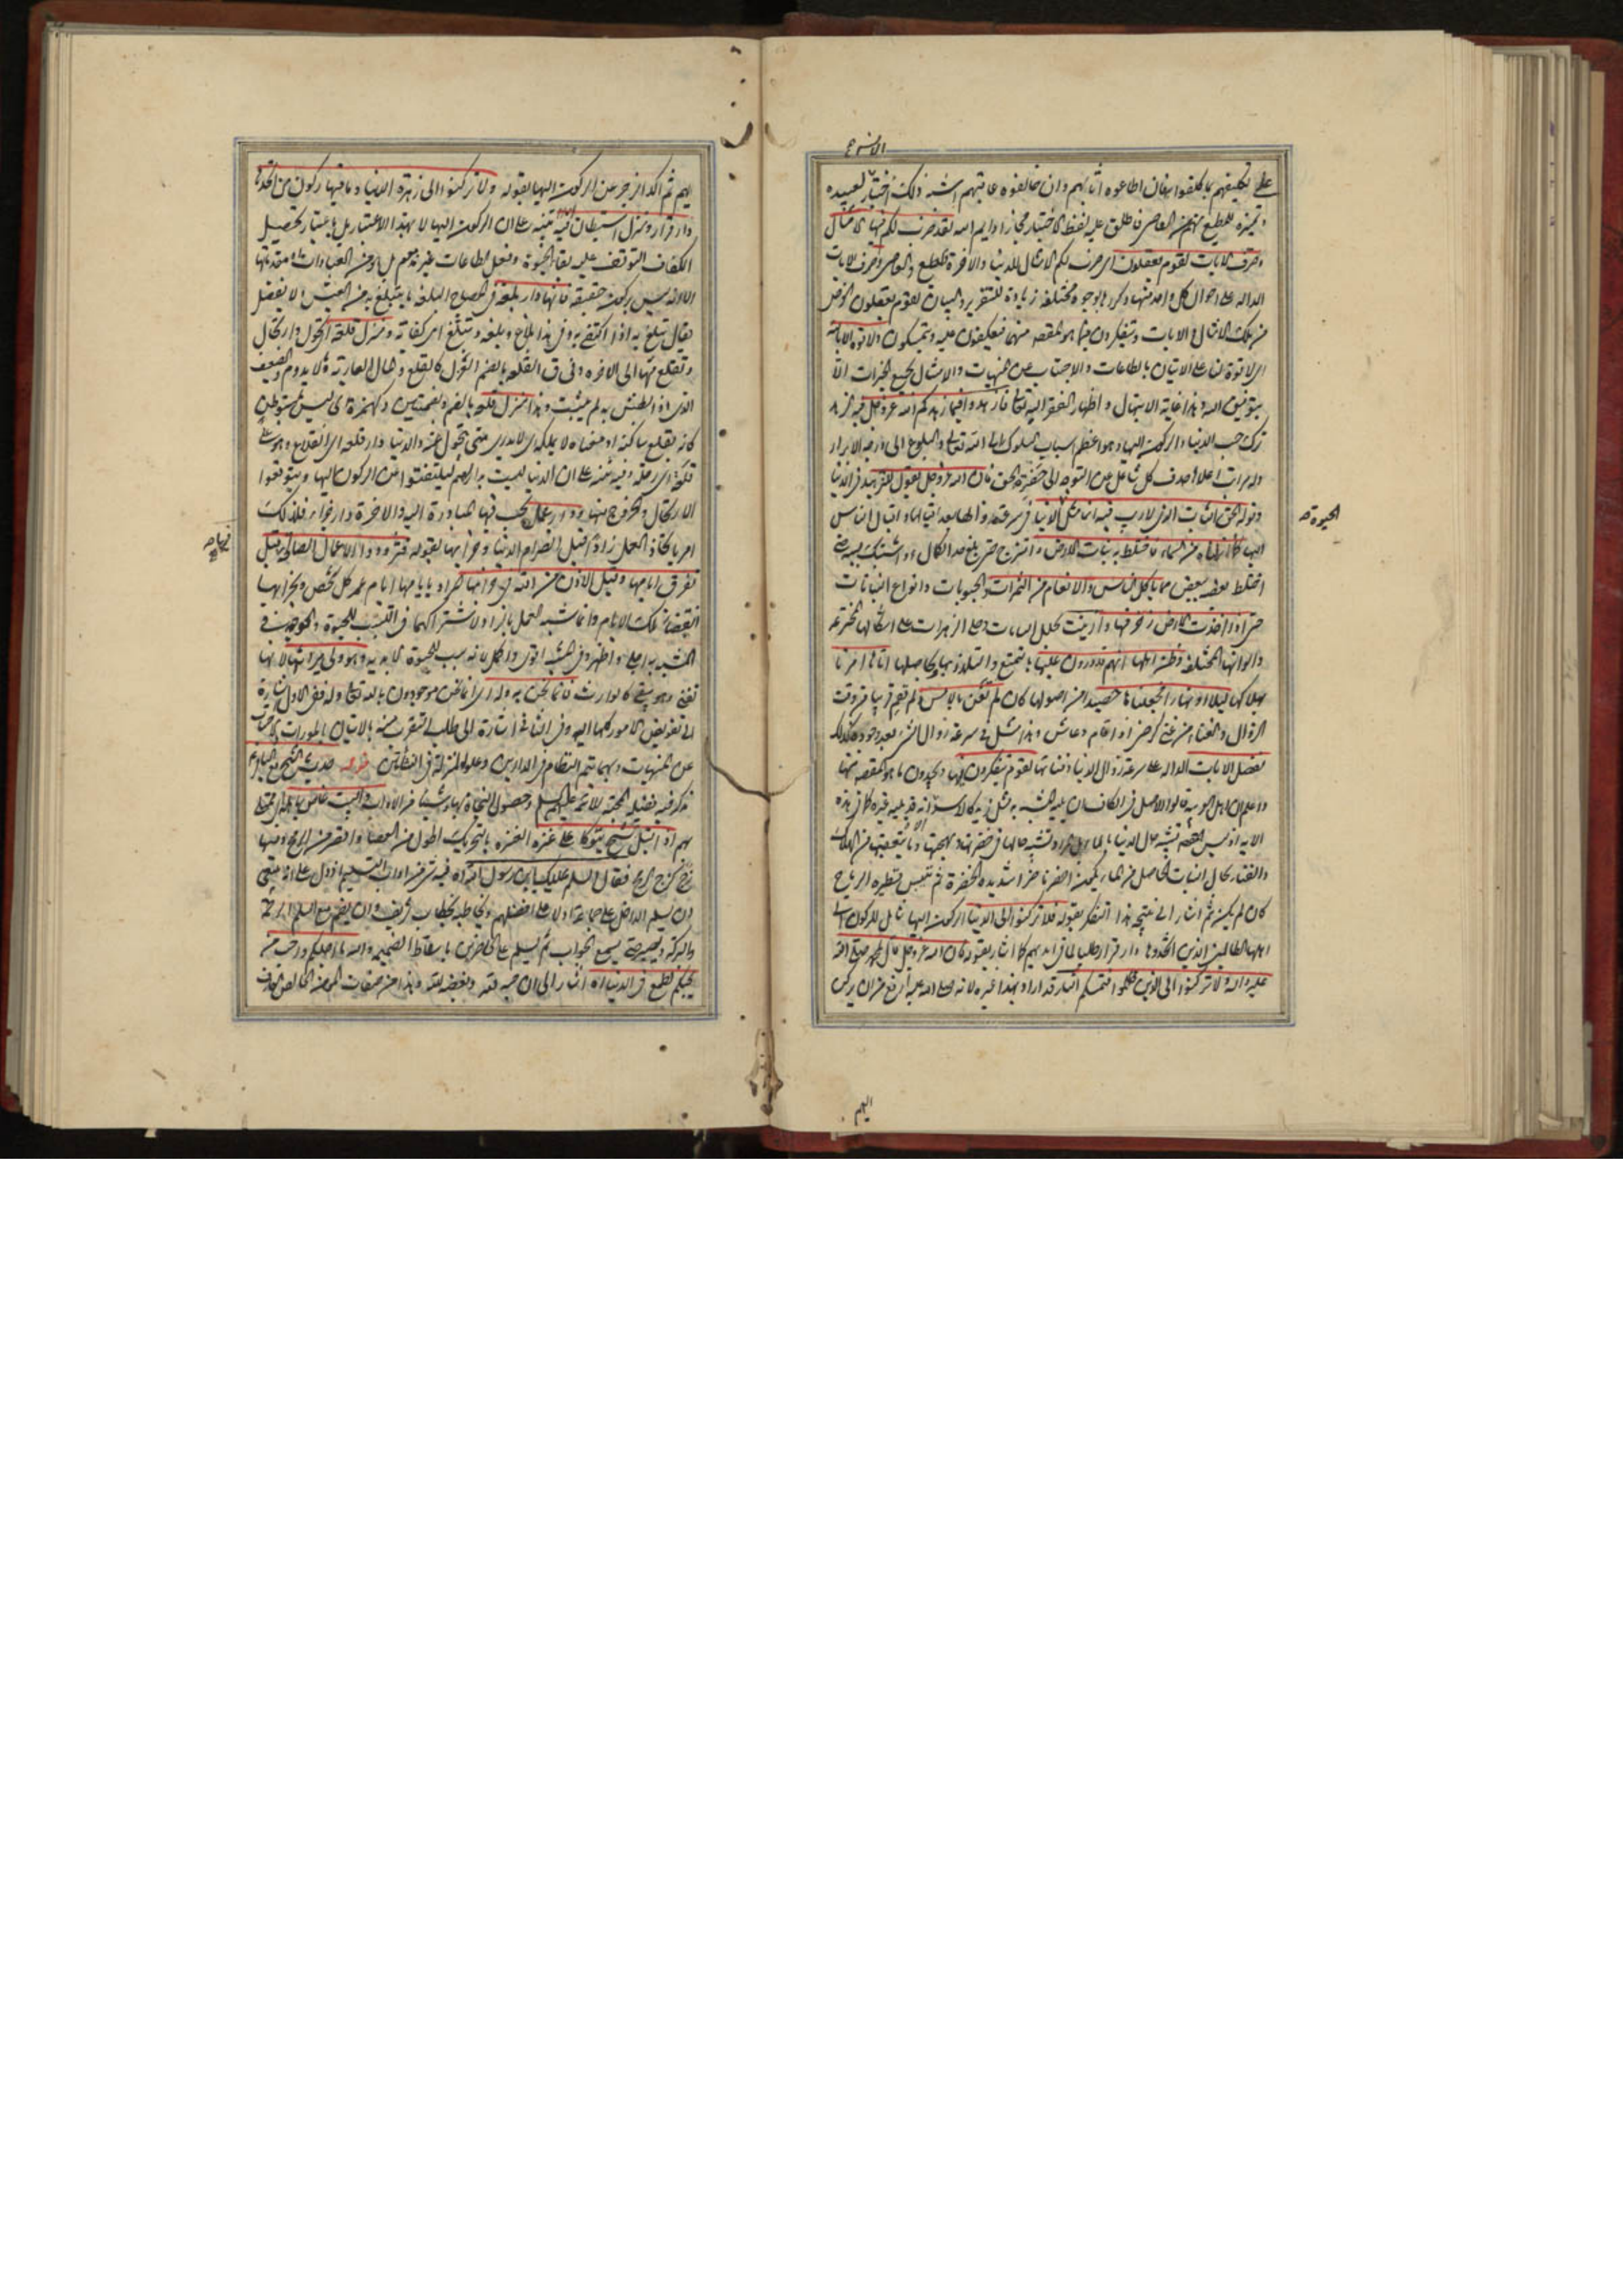 على تكليفهم بما كلفوا به فان اطاعوه اثابهم وان خالفوه عاقبهم اشبه ذلك اختبار لعبيده
المطيع منهم من العاصى فاطلق عليه لفظ الاختبار مجازا وايم الله لقد ضرب لكم فيها الامثال
وصرف الايات لقوم يعقلون اى ضرب لكم الامثال للدنيا والاخرة والمطيع والعاصى وصرف الايات
الدالة على احوال كل واحد منها وكررها بوجوه مختلفة زيادة للتقرير والبيان لقوم يعقلون الغرض
من تلك الامثال والايات ويتفكرون فيما هو المقصد منهما فيعكفون عليه ويتمسكون ولا قوة الا بالله
اى لا قوة لنا على الاتيان بالطاعات والاجتناب عن المنهيات والامتثال بجميع الخيرات الا
بتوفيق الله وهذا غاية الابتهال واظهار الفقر اليه تعالى فازهدوا فيما زهدكم الله عز وجل فيه الزهد
ترك حب الدنيا والركون اليها وهو اعظم اسباب السلوك الى الله تعالى والبلوغ الى درجة الابرار
وله مراتب اعلاها حذف كل شاغل عن التوجه الى حضرة الحق فان الله عز وجل يقول للتزهيد فى الدنيا
وقوله الحق الثابت الذى لا ريب فيه انما مثل الدنيا فى سرعة زوالها بعد اقبالها واقبال الناس
اليها كماء انزلناه من السماء فاختلط به نبات الارض وامتزج حتى بلغ حد الكمال واشتبك بسببه حتى
اختلط بعضه ببعض مما ياكل الناس والانعام من الثمرات والحبوبات وانواع النباتات
حتى اذا اخذت الارض زخرفها وازينت بحلل النباتات وحلى الزهرات على اشكالها المخترعة
والوانها المختلفة وظن اهلها انهم قادرون عليها بالتمتع والتلذذ بها وبحاصلها اتاها امرنا
بهلاكها ليلا او نهارا فجعلناها حصيدا من اصولها كان لم تغن بالامس ولم تقم قريبا من وقت
الزوال والغناء من غنى كرضى اذا اقام وعاش وهذا مثل فى سرعة زوال الشىء بعد وجوده كذلك
نفصل الايات الدالة على سرعة زوال الدنيا وفنائها لقوم يتفكرون فيها ويجدون ما هو المقصد منها
واعلم ان اهل العربية قالوا الاصل فى الكاف ان يليه المشبه به مثل زيد كالاسد وانه قد يليه غيره كما فى هذه
الاية اذ ليس القصد تشبيه حال الدنيا بالماء بل المراد تشبيه حالها فى خضرتها وبهجتها وما يتعقبها من الهلاك
والفناء بحال النبات الحاصل من الماء يكون اخضر ناضرا شديد الخضرة ثم ييبس فتطيره الرياح
كان لم يكن ثم اشار الى نتيجة هذا التفكر بقوله فلا تركنوا الى الدنيا الركون اليها شامل للركون الى
اهلها الطالبين الذين اتخذوها دار قرار وظلموا لما فى ايديهم كما اشار بقوله فان الله عز وجل قال لمحمد صلى الله
عليه واله ولا تركنوا الى الذين ظلموا فتمسكم النار قد اراد بهذا غيره لانه صلى الله عليه ارفع من ان يركن
الحيوة صح
اليهم
اليهم ثم اكد الزجر عن الركون اليها بقوله ولا تركنوا الى زهرة الدنيا وما فيها ركون من اتخذها
دار قرار ومنزل استيطان فيه تنبيه على ان الركون اليها لا بهذا الاعتبار بل باعتبار تحصيل
الكفاف المتوقف عليه بقاء الحيوة وفعل الطاعات غير مذموم بل هو من العبادات او مقدماتها
الا انه ليس بركون حقيقة فانها دار بلغة فى المصباح البلغة ما يتبلغ به من العيش ولا يفضل
يقال تبلغ به اذا اكتفى به وفى هذا بلاغ وبلغة وتبلغ اى كفاية ومنزل قلعة اى تحول وارتحال
وتقلع منها الى الاخرة وفى ق القلعة بالضم العزل كالقلع والمال العارية وما لا يدوم والضعيف
الذى اذا بطش به لم يثبت وهذا منزل قلعة بالضم وبضمتين وكهمزة اى ليس بمستوطن
كانه يقلع ساكنه او معناه لا يملكه اى لا يدرى متى يتحول عنه والدنيا دار قلعة اى انقلاع وهو على
قلعة اى رحلة وفيه تنبيه على ان الدنيا ليست بدارهم ليلتفتوا عن الركون اليها ويتوقعوا
الارتحال والخروج منها ودار عمل يجب فيها المبادرة اليه والاخرة دار جزاء فلذلك
امر باتخاذ العمل زادا قبل انصرام الدنيا وخرابها بقوله فتزودوا الاعمال الصالحة قبل
تفرق ايامها وقبل الاذن من الله فى خرابها المراد بايامها ايام عمر كل شخص وبخرابها
انقضاء تلك الايام وانما شبه العمل بالزاد لاشتراكهما فى التسبب للحيوة والوجه فى
المشبه به اجلى واظهر وفى المشبه اقوى واكمل لانه سبب للحيوة الابدية وهو ولى ميراثها لانها
تفنى وهو يبقى كالوارث فانما نحن به وله اى انما نحن موجودون بالله تعالى وله ففى الاول اشارة
الى تفويض الامور كلها اليه وفى الثانى اشارة الى طلب التقرب منه بالاتيان بالمورات والاجتناب
عن المنهيات وبهما تتم النظام فى الدارين وعلو المنزلة فى النشأتين حديث الشيخ مع الباقر ع
ذكر فيه فضيلة المحبة للائمة عليهم السلم وحصول النجاة بها وشيئا من الاداب والبيت غاص باهله اى ممتلى
بهم اذ اقبل شيخ يتوكأ على عنزة العنزة بالتحريك اطول من العصا واقصر من الرمح وفيها
زج كزج الرمح فقال السلم عليك يابن رسول الله اه فيه شىء من اداب التسليم اذ دل على انه ينبغى
ان يسلم الداخل على جماعة اولا على افضلهم ويخاطبه بخطاب شريف وان يضم مع السلم الرحمة
والبركة ويصبر حتى يسمع الجواب ثم يسلم على الحاضرين باسقاط الضمير والله ما احبكم واحب من
يحبكم لطمع فى الدنيا اه اشار الى ان حبه لله وبغضه لله وهذا من صفات المؤمن الخالص العارف